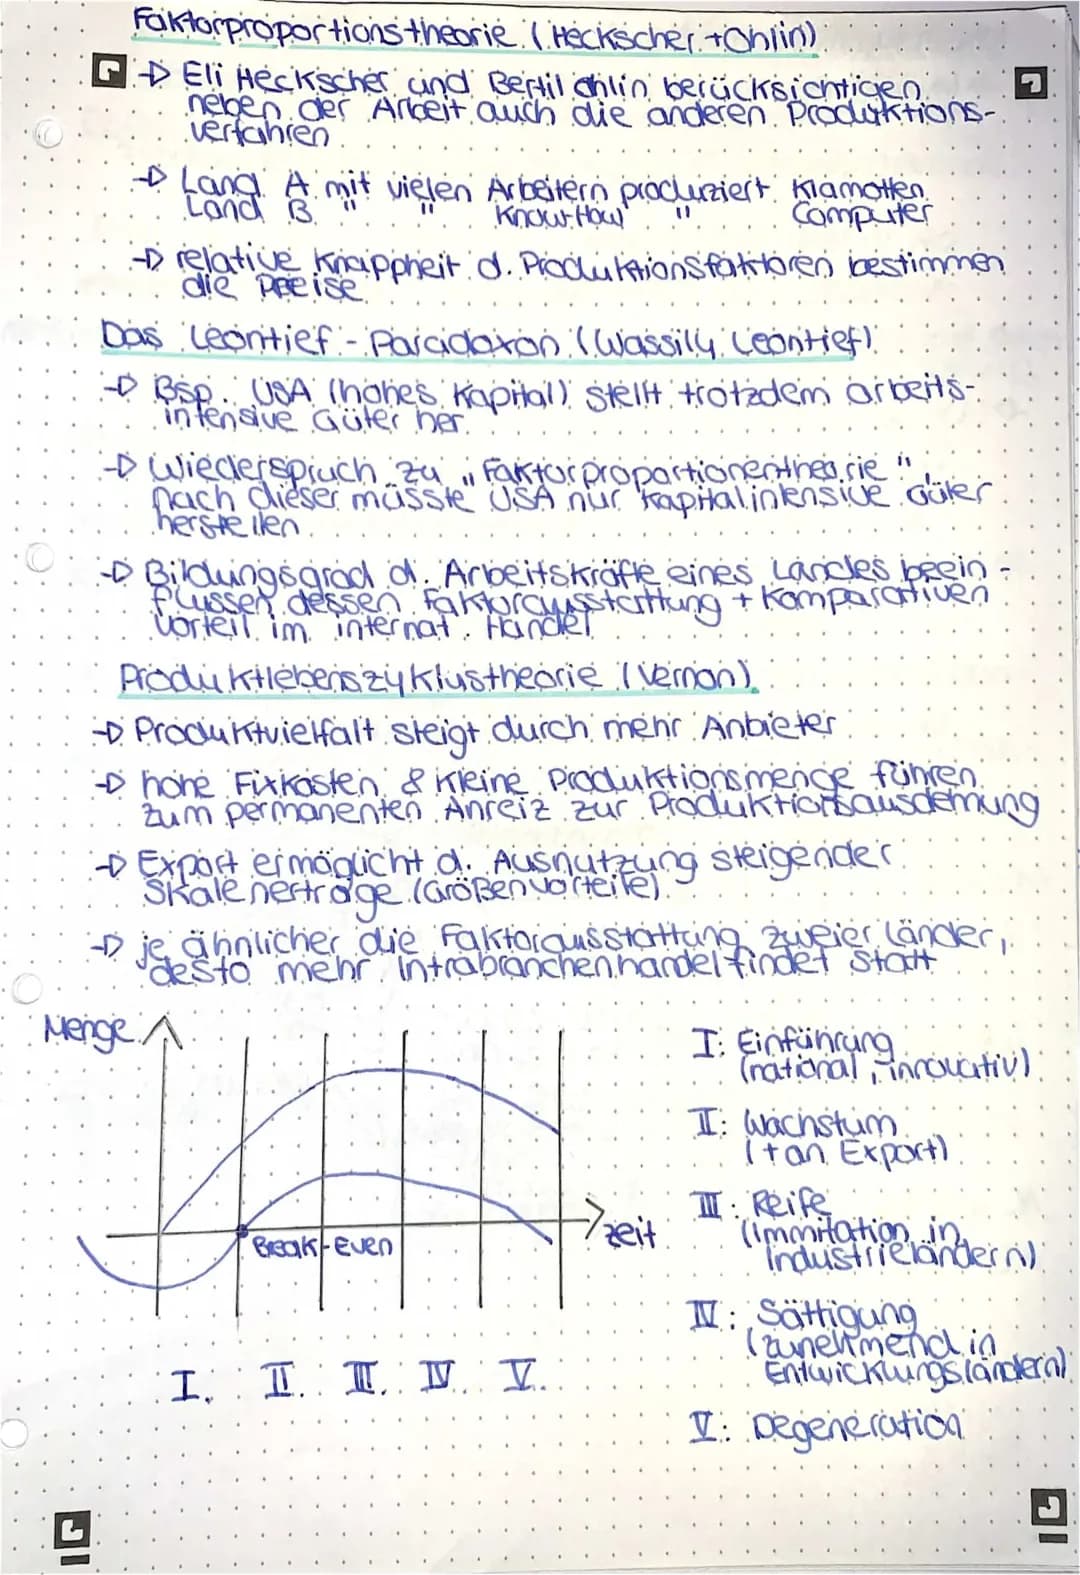 Faktorproportionstheorie (Heckscher + Ohlin)
-> Eli Heckscher und Bertil Ohlin berücksichtigen
neben der Arbeit auch die anderen Produktions-
verfahren
-> Land A mit vielen Arbeitern produziert Klamotten
Land B " " Know-How " Computer
-> relative Knappheit d. Produktionsfaktoren bestimmen
die Preise
Das Leontief-Paradoxon (Wassily Leontief)
-> Bsp. USA (hohes Kapital) stellt trotzdem arbeits-
intensive Güter her.
-> Wiederspruch zu "Faktorproportionentheorie",
nach dieser müsste USA nur kapitalintensive Güter
herstellen
-> Bildungsgrad d. Arbeitskräfte eines Landes beein-
flussen dessen Faktorausstattung + komparativen
Vorteil im internat. Handel
Produktlebenszyklustheorie (Vernon)
-> Produktvielfalt steigt durch mehr Anbieter
-> hohe Fixkosten & kleine Produktionsmenge führen
zum permanenten Anreiz zur Produktionsausdehnung
-> Export ermöglicht d. Ausnutzung steigender
Skalenerträge (Größenvorteile)
-> je ähnlicher die Faktorausstattung zweier Länder,
desto mehr Intrabranchenhandel findet statt
Menge
Break-Even
Zeit
I. II. III. IV. V.
I: Einführung
(national, innovativ)
II: Wachstum
(+ an Export)
III: Reife
(Immitation in
Industrieländern)
IV: Sättigung
(zunehmend in
Entwicklungsländern)
V: Degeneration